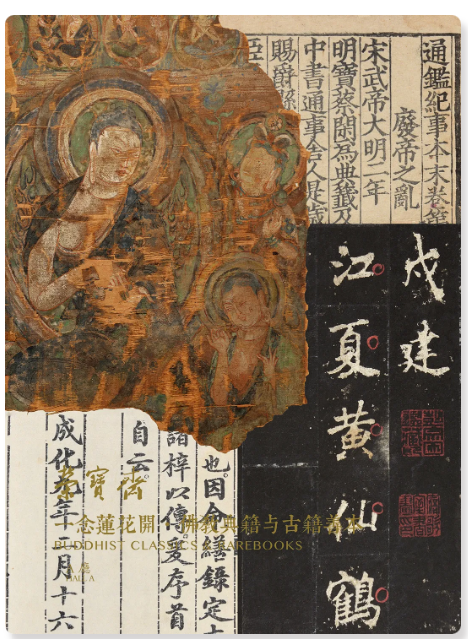 通鑑紀事本末卷第
廢帝之亂
宋武帝大明二年
明寶蔡閑為典籤及
中書通事舍人是歲
賜爵縣
戌建
江夏黄仙鶴
也。因令繕錄定
諸梓以傳。爰序首
自云。
成化九年二月十六
榮寶齋
一念蓮花開 佛教典籍与古籍善本
BUDDHIST CLASSICS RAREBOOKS